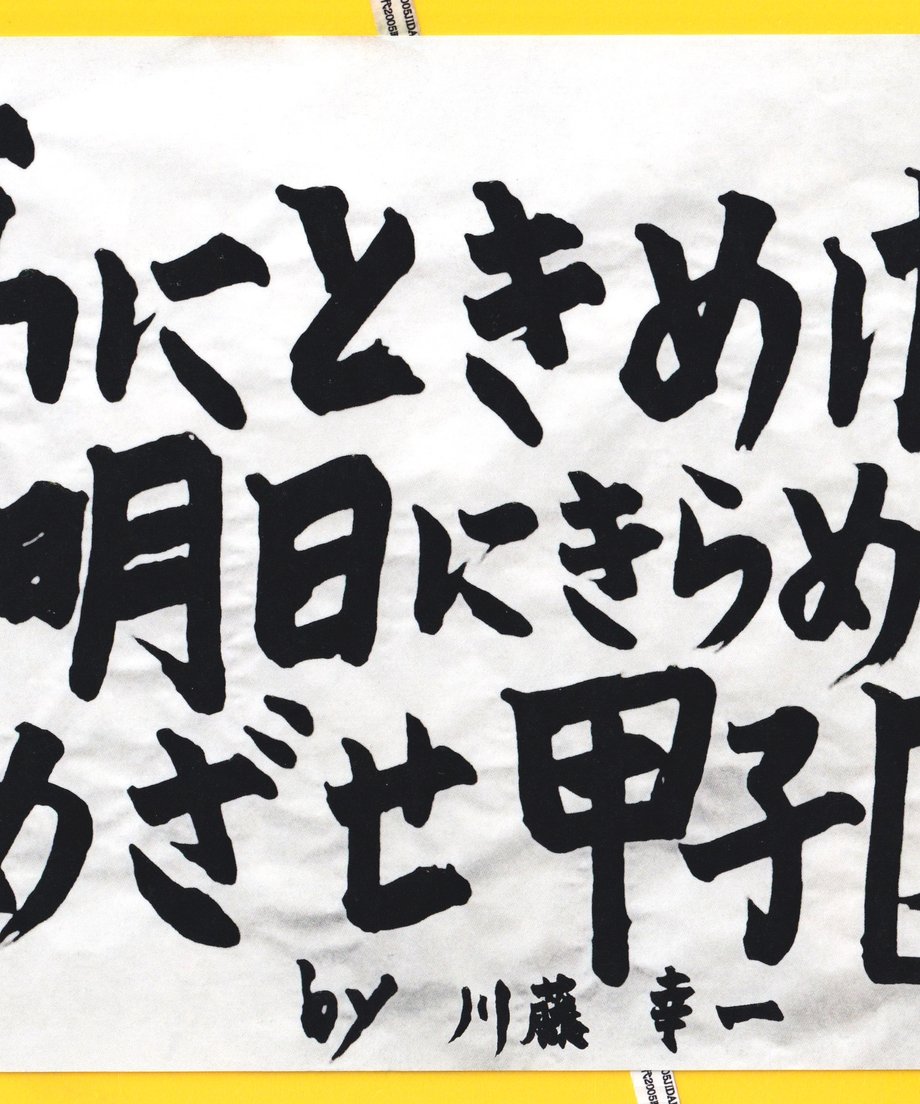 にときめけ
明日にきらめ
めざせ甲子
by 川藤 幸一